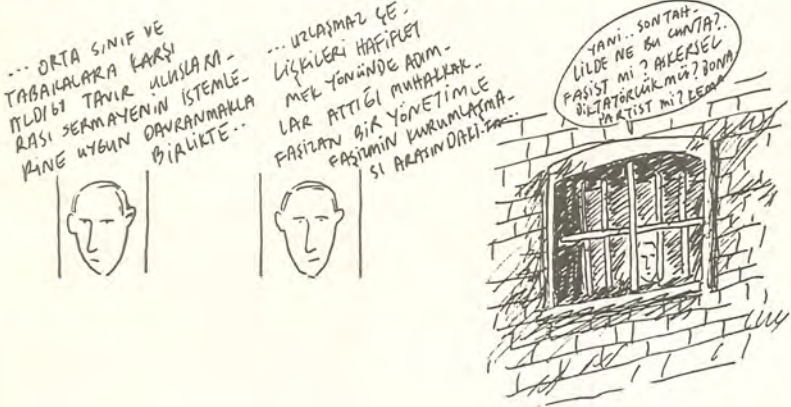 ... ORTA SINIF VE
TABAKALARA KARŞI
ALDIĞI TAVIR ULUSLARA-
RASI SERMAYENİN İSTEMLE-
RİNE UYGUN DAVRANMAKLA
BİRLİKTE..
... UZLAŞMAZ ÇE-
LİŞKİLERİ HAFİFLET
MEK YÖNÜNDE ADIM-
LAR ATTIĞI MUHAKKAK..
FAŞİZAN BİR YÖNETİMLE
FAŞİZMİN KURUMLAŞMA-
SI ARASINDAKİ
YANİ.. SON TAH-
LİLDE NE BU CUNTA?..
FAŞİST Mİ? ASKERSEL
DİKTATÖRLÜK MÜ? BONA
PARTİST Mİ? KEMA